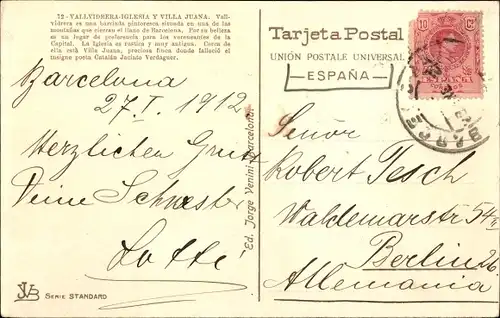 12 - VALLVIDRERA-IGLESIA Y VILLA JUANA. Vall-
vidrera es una barriada pintoresca situada en una de las
montañas que cierran el llano de Barcelona. Por su belleza
es un lugar de preferencia para los veraneantes de la
Capital. La Iglesia es rustica y muy antigua. Cerca de
ella está Villa Juana, preciosa finca donde falleció el
insigne poeta Catalán Jacinto Verdaguer.
Barcelona
27. I. 1912
Herzlichen Gruss
Deine Schwester
Lotte
SERIE STANDARD
Ed. Jorge Venini-Barcelona.
Tarjeta Postal
UNIÓN POSTALE UNIVERSAL
ESPAÑA
10 CS
Señor
Robert Tesch
Waldemarstr 54
Berlin 26
Allemania